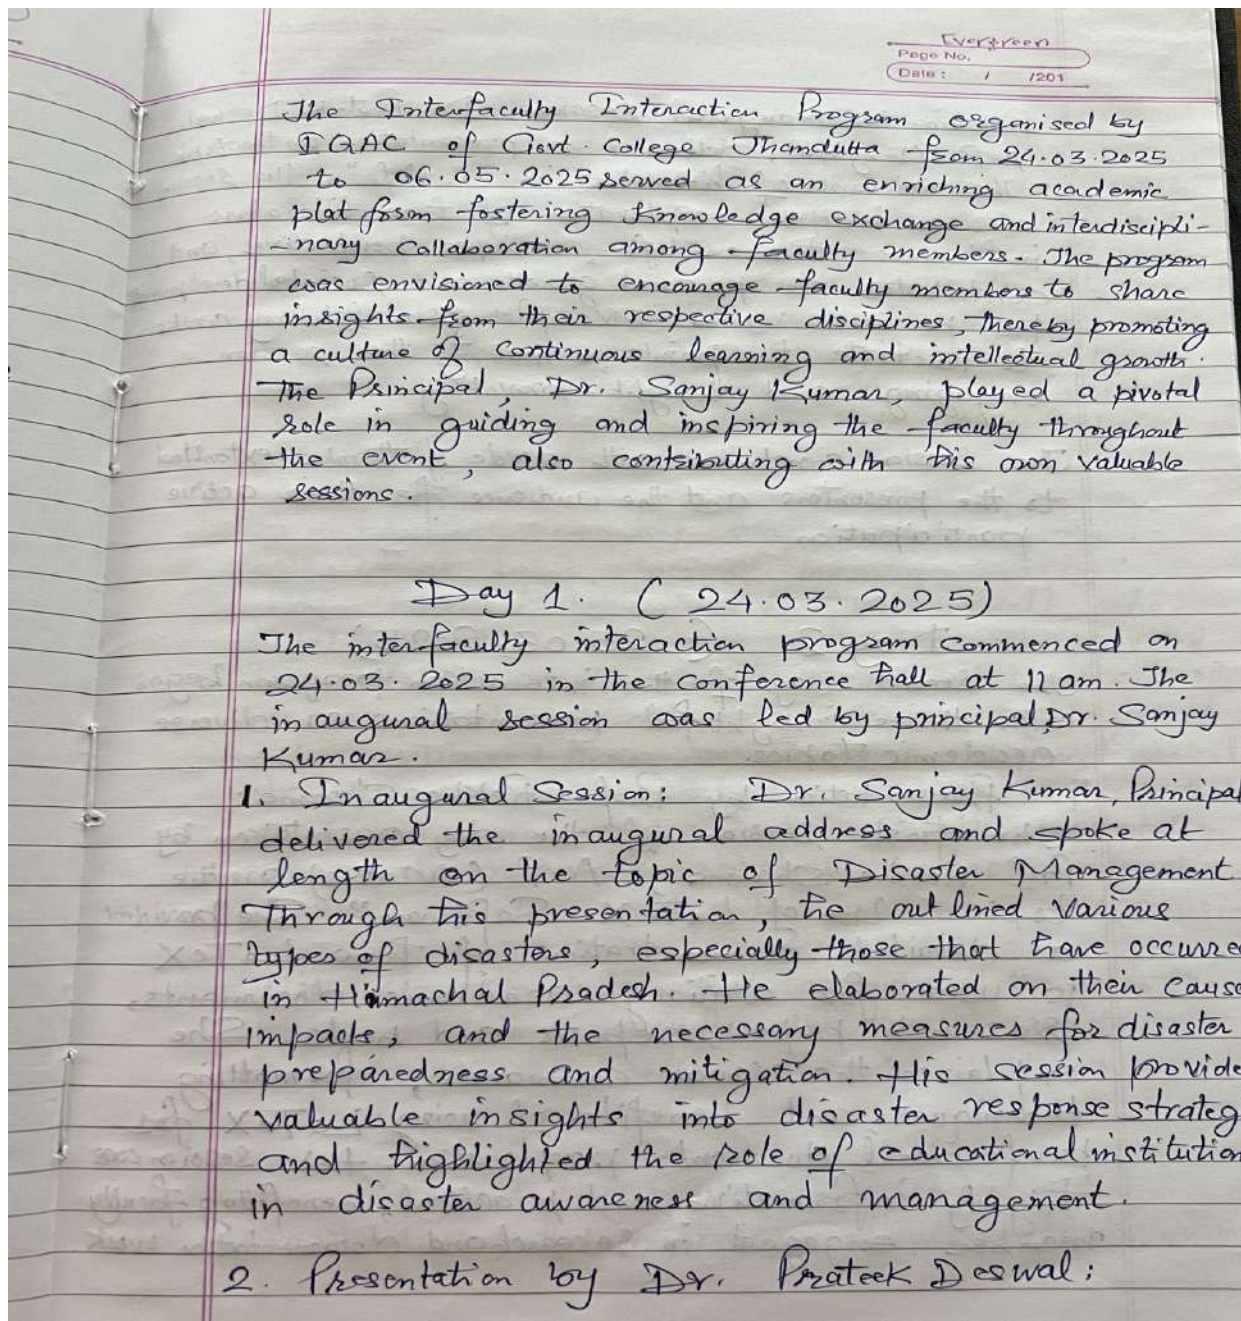 Evergreen
Page No.
Date : / /201
The Interfaculty Interaction Program organised by
IQAC of Govt. College Jhandutta from 24.03.2025
to 06.05.2025 served as an enriching academic
plat form fostering knowledge exchange and interdiscipli-
-nary collaboration among faculty members. The program
was envisioned to encourage faculty members to share
insights from their respective disciplines, thereby promoting
a culture of continuous learning and intellectual growth.
The Principal, Dr. Sanjay Kumar, played a pivotal
role in guiding and inspiring the faculty throughout
the event, also contributing with his own valuable
sessions.
Day 1. ( 24.03.2025)
The interfaculty interaction program commenced on
24.03.2025 in the conference hall at 11 am. The
inaugural session was led by principal, Dr. Sanjay
Kumar.
1. Inaugural Session: Dr. Sanjay Kumar, Principal
delivered the inaugural address and spoke at
length on the topic of Disaster Management
Through his presentation, he outlined various
types of disasters, especially those that have occurre
in Himachal Pradesh. He elaborated on their cause
impacts, and the necessary measures for disaster
preparedness and mitigation. His session provide
valuable insights into disaster response strateg
and highlighted the role of educational institution
in disaster awareness and management.
2. Presentation by Dr. Prateek Deswal: